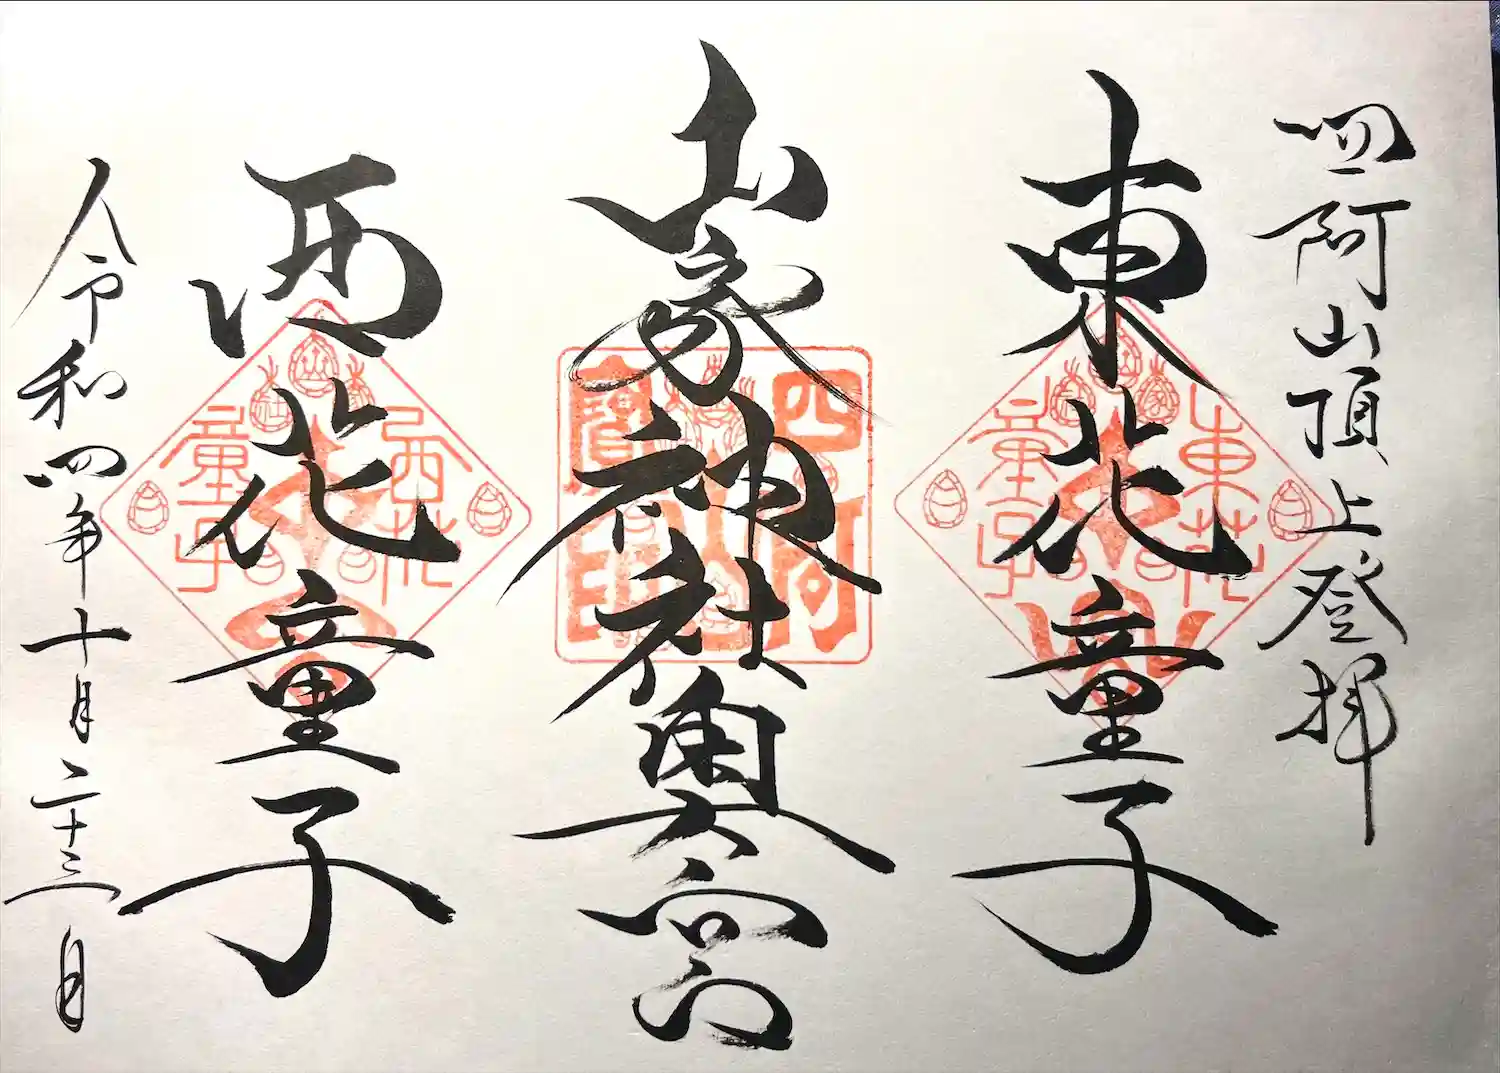 四阿山頂上登拝
東花童子
山家神社奥宮
西花童子
令和四年十月二十三日
東花
童子
四阿
寶印
西花
童子